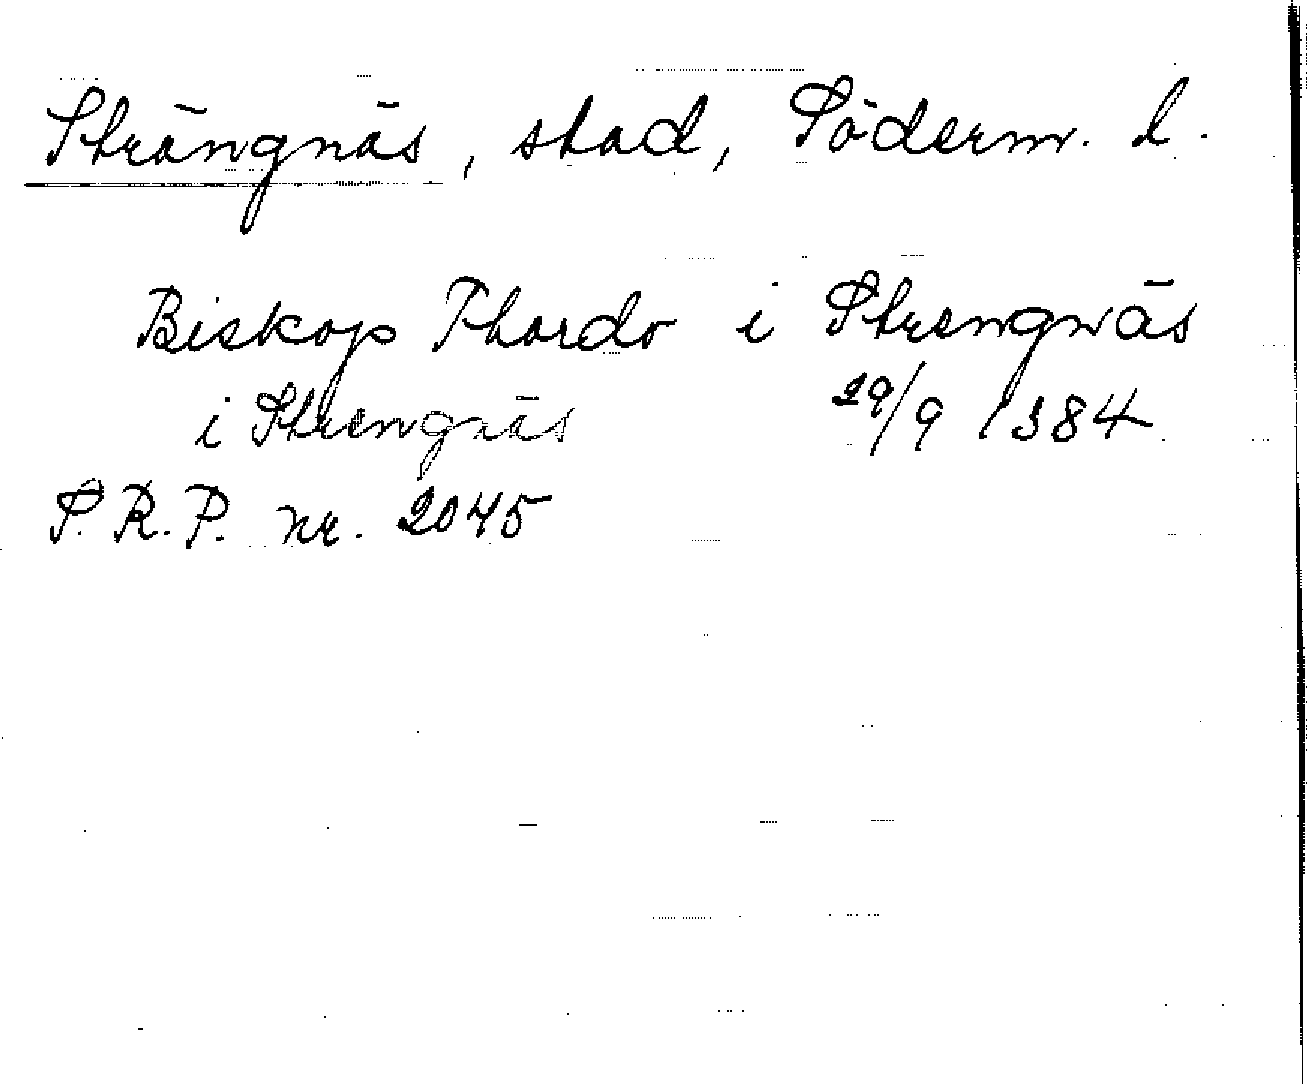 Strängnäs, stad, Söderm. l.
Biskop Thordo i Strengnäs
i Strengnäs 29/9 1384
S.R.P. nr. 2045